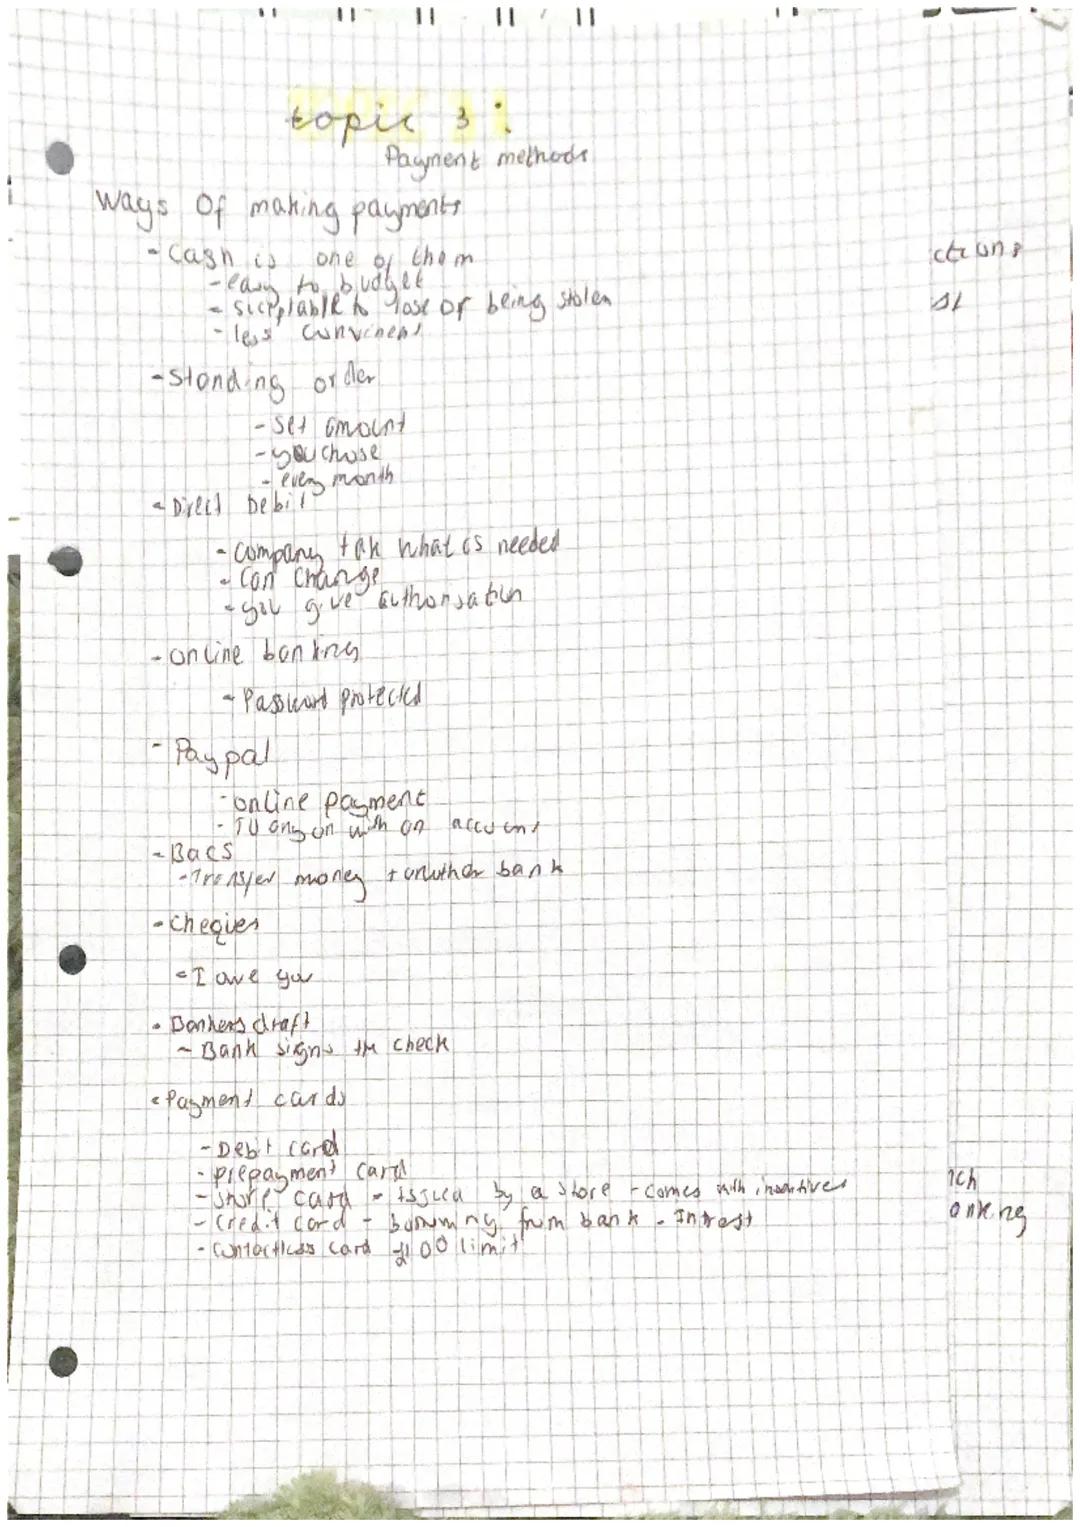 topic 3:
Payment methods
Ways Of making payments
- Cash is one of them
- easy to budget
- to lose or being stolen
- less
- Standing order
- Set amount
- you chose
- every month
- Direct Debit
- Company tak what is needed
- Can change
- you give authorisation
- online banking
- Password protected
- Paypal
- online payment
- TU with an account
- Bacs
- Transfer money t anuther bank
- Cheques
- I owe you
- Bankers draft
- Bank signs the check
- Payment cards
- Debit card
- prepayment card
- store card - issued by a store - comes with
- Credit card - from bank - Intrest
- contactless card £100 limit
ctions
st
ich
anking